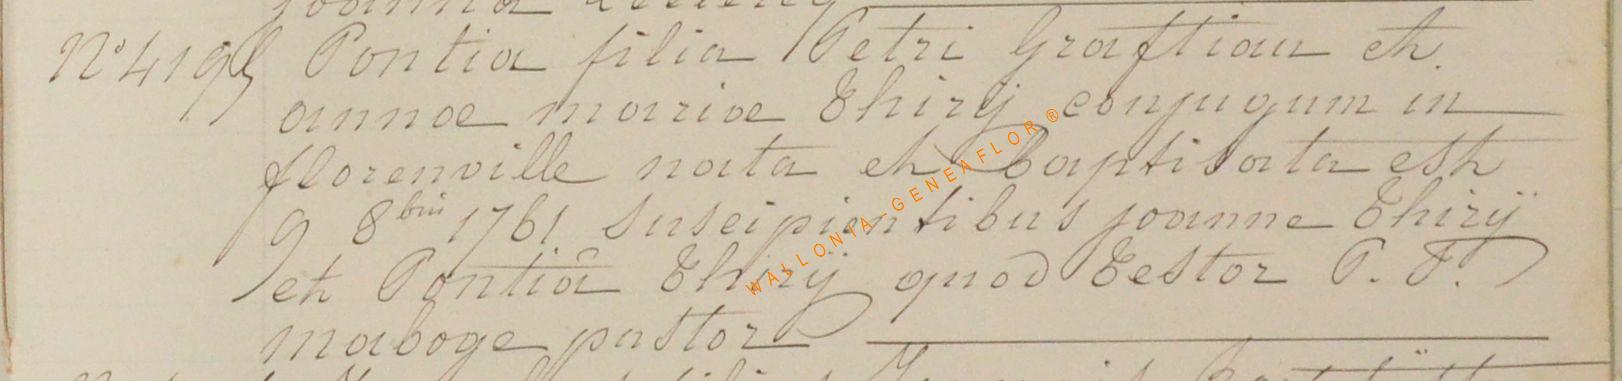 joanna
N° 4195 Pontia filia Petri Graftiau et
annae mariae Thirÿ conjugum in
florenville nata et Baptisata est
9 8bris 1761 Suscipientibus joanne Thirÿ
et Pontiâ Thirÿ quod Testor P. F.
maboge pastor
WALLONIA-GENEAFLOR®